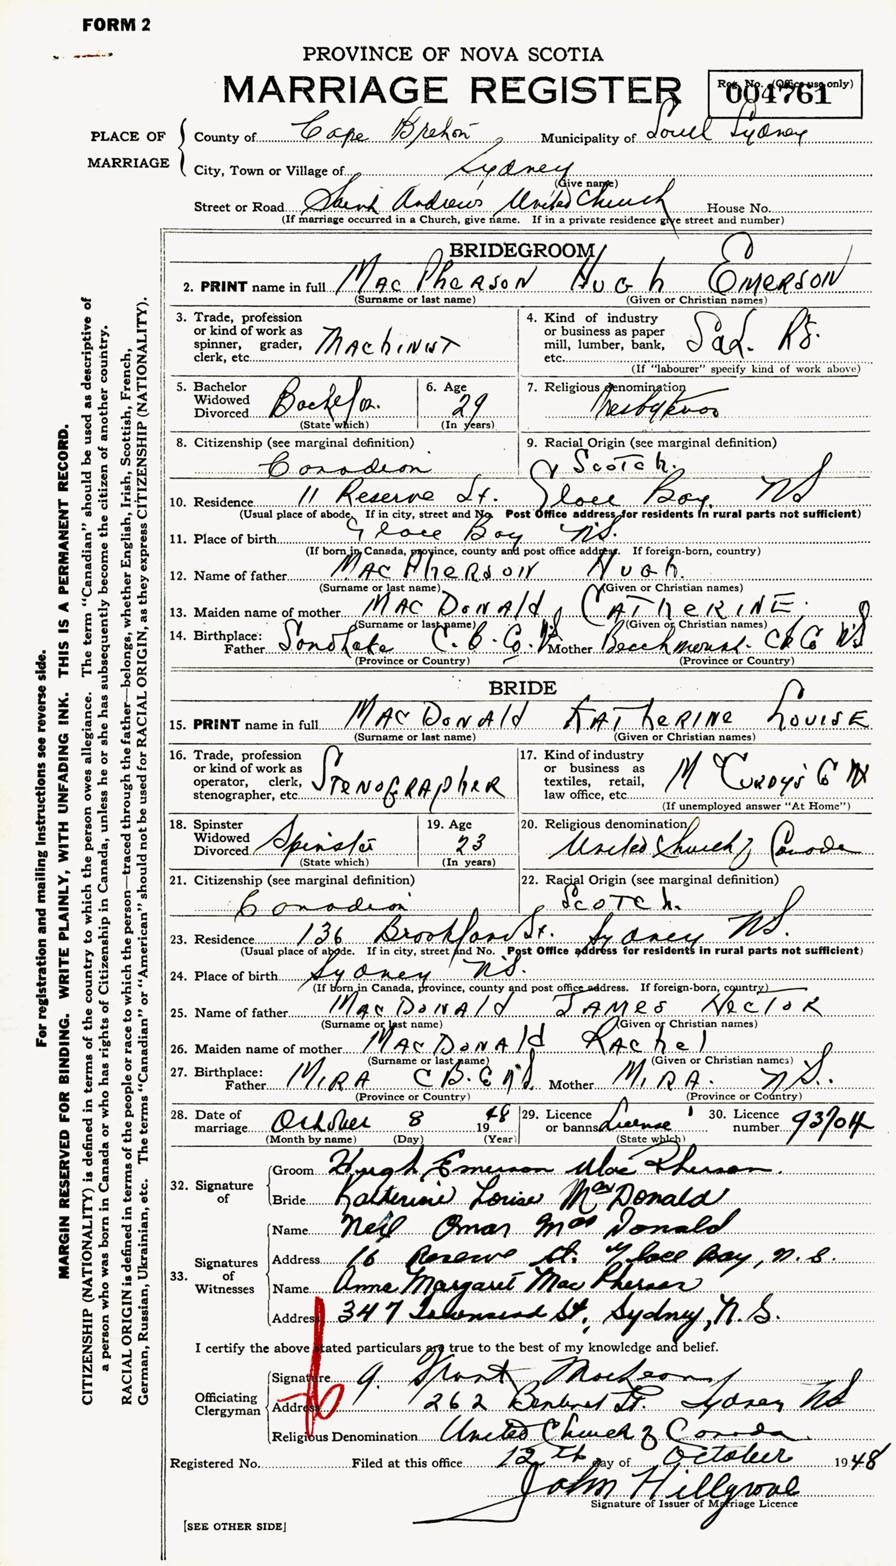 FORM 2
PROVINCE OF NOVA SCOTIA
MARRIAGE REGISTER
Reg. No. (Office use only)
004761
PLACE OF MARRIAGE
County of Cape Breton Municipality of South Sydney
City, Town or Village of Sydney
(Give name)
Street or Road Saint Andrew's United Church House No.
(If marriage occurred in a Church, give name. If in a private residence give street and number)
BRIDEGROOM
2. PRINT name in full MacPherson Hugh Emerson
(Surname or last name) (Given or Christian names)
3. Trade, profession or kind of work as spinner, grader, clerk, etc. Machinist
4. Kind of industry or business as paper mill, lumber, bank, etc. S&L Ry.
(If "labourer" specify kind of work above)
5. Bachelor Widowed Divorced Bachelor
(State which)
6. Age 29
(In years)
7. Religious denomination Presbyterian
8. Citizenship (see marginal definition)
Canadian
9. Racial Origin (see marginal definition)
Scotch.
10. Residence 11 Reserve St. Glace Bay, NS
(Usual place of abode. If in city, street and No. Post Office address for residents in rural parts not sufficient)
11. Place of birth Glace Bay N.S.
(If born in Canada, province, county and post office address. If foreign-born, country)
12. Name of father MacPherson Hugh.
(Surname or last name) (Given or Christian names)
13. Maiden name of mother MacDonald, Catherine.
(Surname or last name) (Given or Christian names)
14. Birthplace: Father C.B. Co. Mother Beechmount. CB Co NS
(Province or Country) (Province or Country)
BRIDE
15. PRINT name in full MacDonald Katherine Louise
(Surname or last name) (Given or Christian names)
16. Trade, profession or kind of work as operator, clerk, stenographer, etc. Stenographer
17. Kind of industry or business as textiles, retail, law office, etc. McCurdy's
(If unemployed answer "At Home")
18. Spinster Widowed Divorced Spinster
(State which)
19. Age 23
(In years)
20. Religious denomination
United Church of Canada
21. Citizenship (see marginal definition)
Canadian
22. Racial Origin (see marginal definition)
Scotch.
23. Residence 136 Brookland St. Sydney NS.
(Usual place of abode. If in city, street and No. Post Office address for residents in rural parts not sufficient)
24. Place of birth Sydney NS.
(If born in Canada, province, county and post office address. If foreign-born, country)
25. Name of father MacDonald James Hector
(Surname or last name) (Given or Christian names)
26. Maiden name of mother MacDonald Rachel
(Surname or last name) (Given or Christian names)
27. Birthplace: Father Mira C.B. Co N.S. Mother Mira. N.S.
(Province or Country) (Province or Country)
28. Date of marriage October 8 1948
(Month by name) (Day) (Year)
29. Licence or banns License
(State which)
30. Licence number 93704
32. Signature of
Groom Hugh Emerson MacPherson.
Bride Katherine Louise MacDonald
33. Signatures of Witnesses
Name Neil Omar MacDonald
Address 16 Reserve St. Glace Bay, N.S.
Name Anna Margaret MacPherson
Address 347 Townsend St., Sydney, N.S.
I certify the above stated particulars are true to the best of my knowledge and belief.
Officiating Clergyman
Signature Grant MacLean
Address 262 Bentinck St. Sydney NS
Religious Denomination United Church of Canada
Registered No. Filed at this office 12th day of October 1948
John Hillgrove
Signature of Issuer of Marriage Licence
[SEE OTHER SIDE]
For registration and mailing instructions see reverse side.
MARGIN RESERVED FOR BINDING. WRITE PLAINLY, WITH UNFADING INK. THIS IS A PERMANENT RECORD.
CITIZENSHIP (NATIONALITY) is defined in terms of the country to which the person owes allegiance. The term "Canadian" should be used as descriptive of
a person who was born in Canada or who has rights of Citizenship in Canada, unless he or she has subsequently become the citizen of another country.
RACIAL ORIGIN is defined in terms of the people or race to which the person—traced through the father—belongs, whether English, Irish, Scottish, French,
German, Russian, Ukrainian, etc. The terms "Canadian" or "American" should not be used for RACIAL ORIGIN, as they express CITIZENSHIP (NATIONALITY).